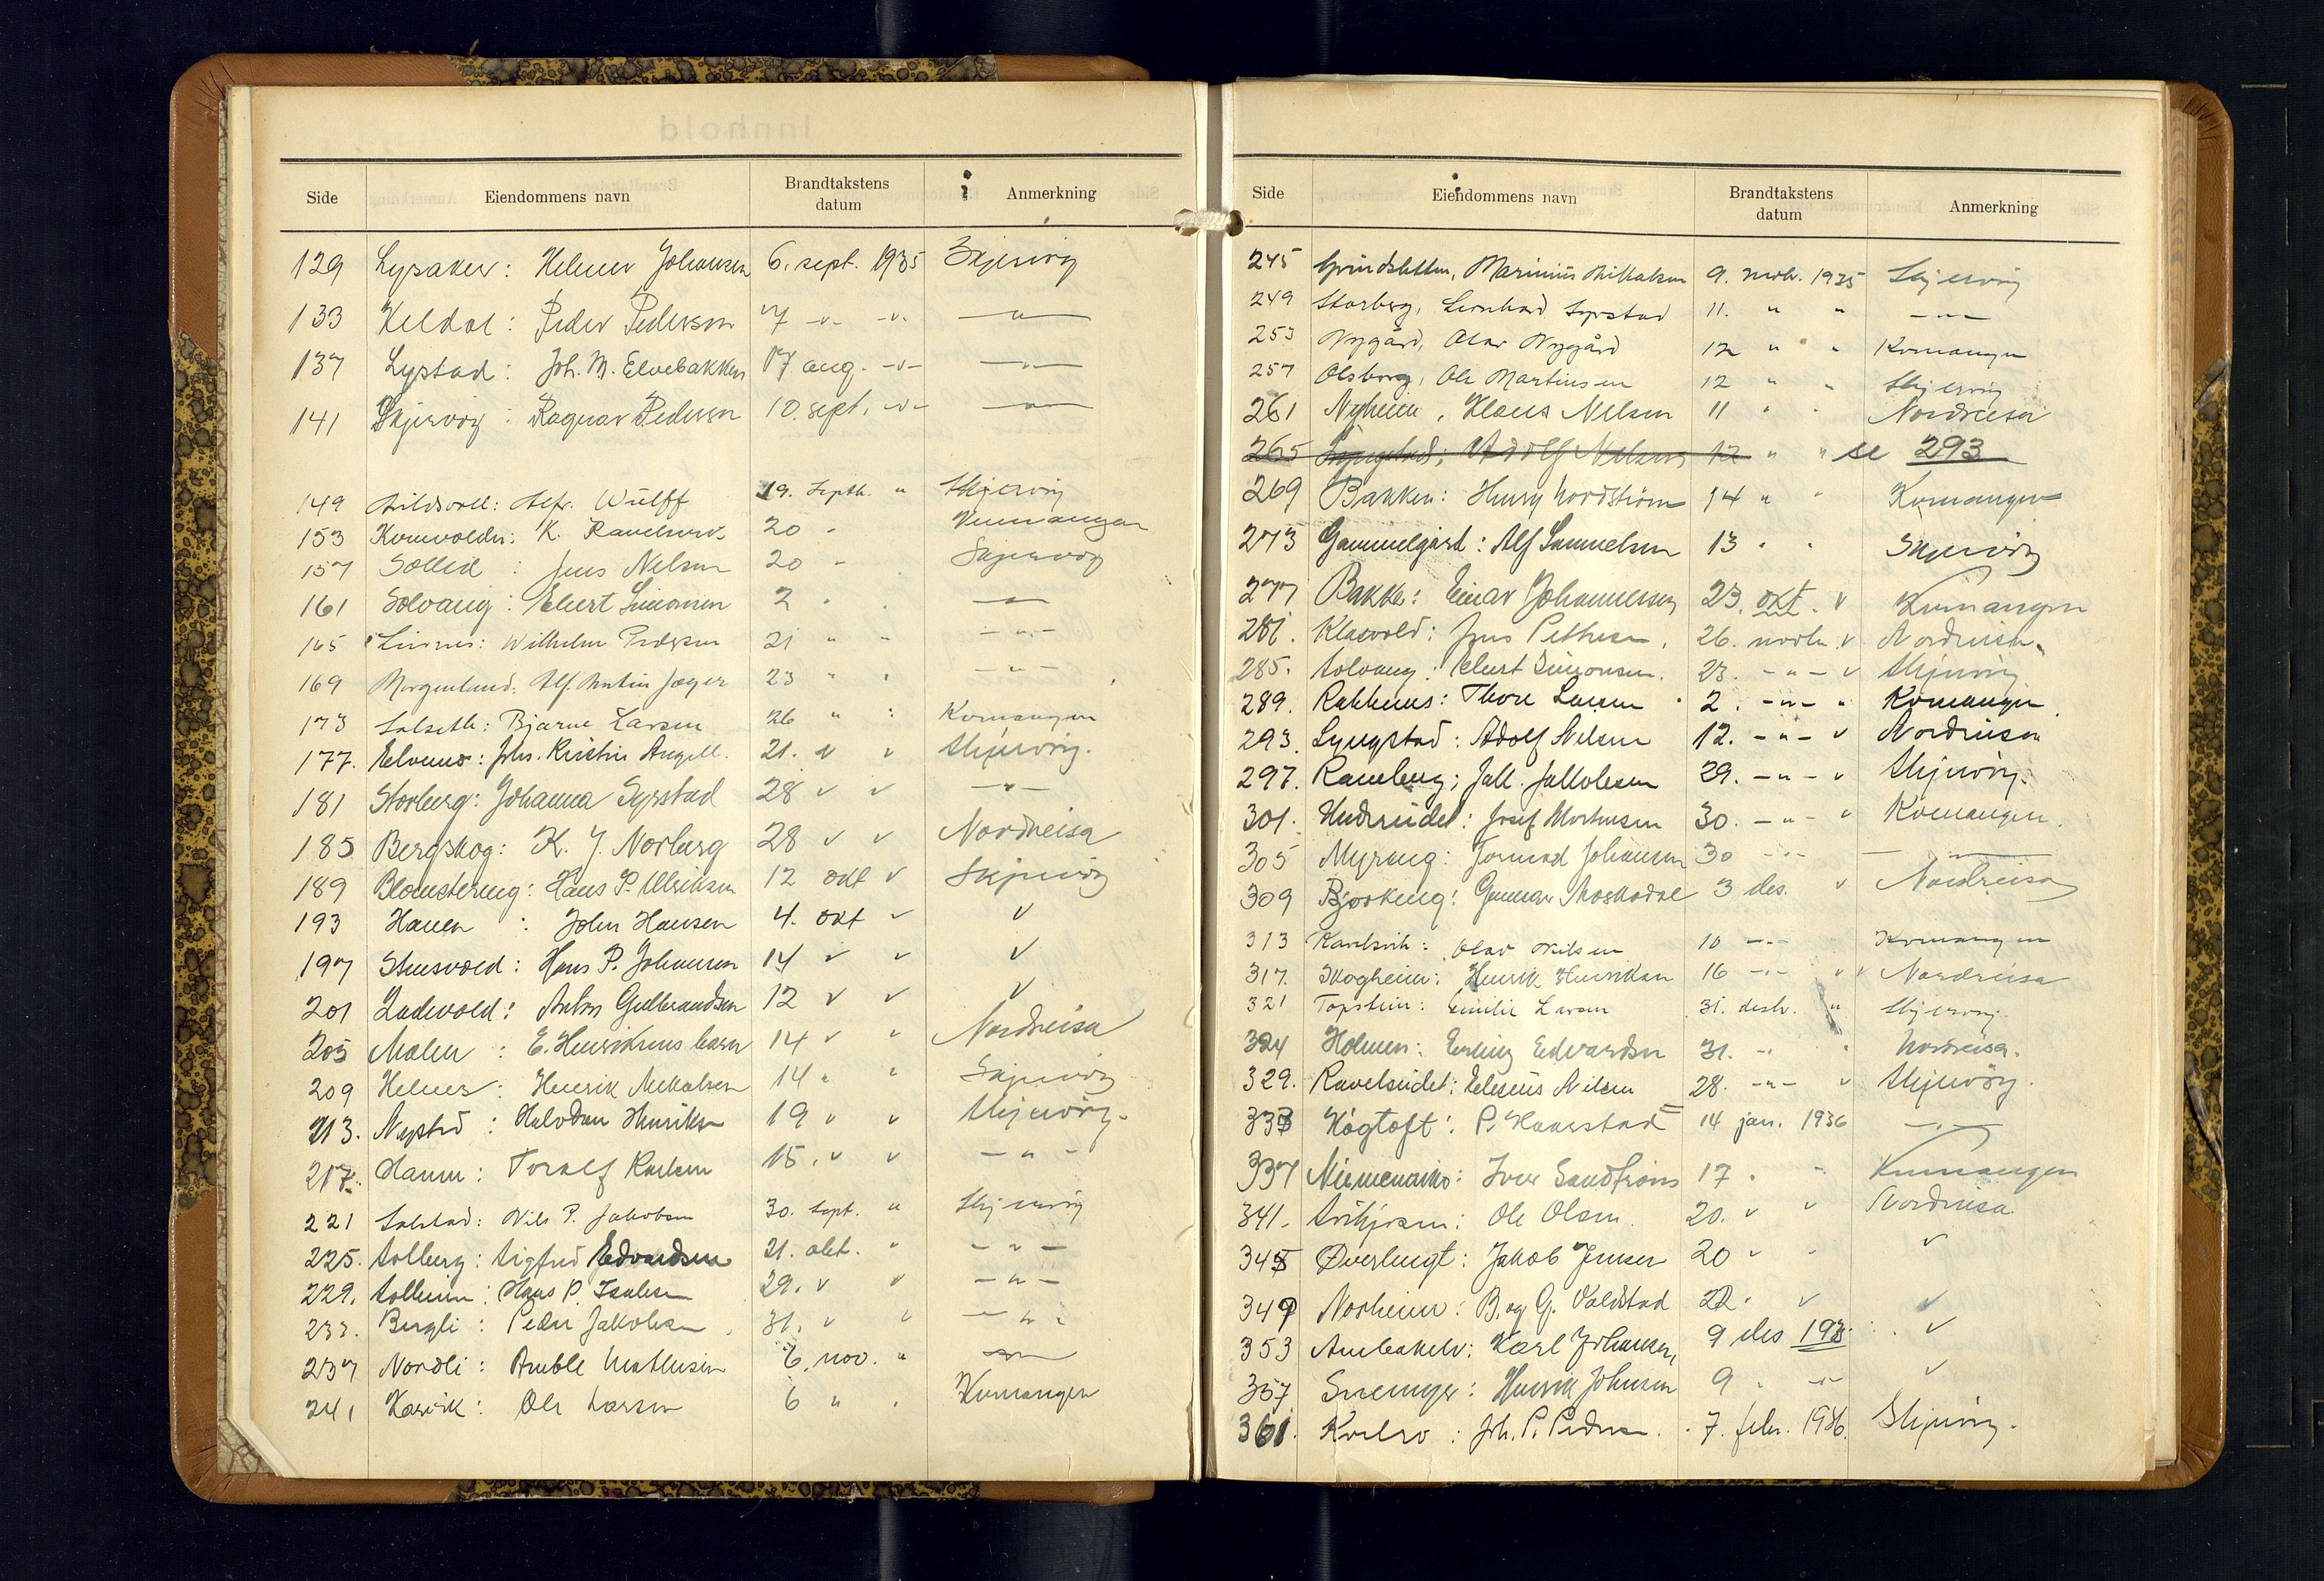 Side Eiendommens navn Brandtakstens datum Anmerkning
129 Lysaker: Helmer Johansen 6. sept. 1935 Skjervöy
133 Keldal: Peder Pedersen 7 -"- -"- -"-
137 Lystad: Joh. M. Elvebakken 17. aug. -"- -"-
141 Skjervöy: Ragnar Pedersen 10. sept. -"- -"-
149 Alfr. Wulff 19. Septb. " Skjervöy
153 K. 20 " Kvænangen
157 Sollid: Jens Nelsen 20 " Skjervöy
161 Solvang: Elvert Simonsen 2 " " -"-
165 Linnes: Wilhelm Pedersen 21 " " -"-
169 Morgenland: Alf. Martin Jæger 23 " " -"-
173 Solseth: Bjarne Larsen 26 " " Kvænangen
177. Elvenes: Johs. Kristin Angell. 21. " " Skjervöy.
181 Storberg: Johanna Syrstad 28 " " -"-
185 Bergskog: K. J. Norberg 28 " " Nordreisa
189 Blomstereng: Hans P. Ulriksen 12 okt " Skjervöy
193 Haugen: John Hansen 4. okt " "
197 Stensvold: Hans P. Johansen 14 " " "
201 Ladevold: Anton Gulbrandsen 12 " " "
205 Molen: E. Henriksens barn 14 " " Nordreisa
209 Helnes: Henrik Mikalsen 14 " " Skjervöy
213. Nysted: Halvdan Henriksen 19 " " Skjervöy.
217. Toralf Karlsen 15. " " - " -
221 Solstad: Nils P. Jakobsen 30. Sept. " Skjervöy
225. Solberg: Sigfred Edvardsen 21. okt. " - " -
229. Solheim: Hans P. Isaksen 29. " " - " -
233. Bergli: Peder Jakobsen 31. " " - " -
237 Nordli: Amble Mathisen 6. nov. " -"-
241 Karvik: Ole Larsen 6 " " Kvænangen
Side Eiendommens navn Brandtakstens datum Anmerkning
245 Grindsletten, Marinius Mikkalsen 9. novb. 1935 Skjervöy
249 Storberg, Leonhard Syrstad 11. " " -"-
253 Nygård, Olav Nygård 12 " " Kvænangen
257 Olsborg, Ole Martinsen 12 " " Skjervöy
261 Nyheim, Klaus Nilsen 11 " " Nordreisa
265 Lyngstad: Adolf Nelsen 12 " " se 293
269 Bakken: Henry Nordström 14 " " Kvænangen
273 Gammelgård: Alf Samuelsen 13 " " Skjervöy
277 Bakke: Einar Johannesen 23. okt. " Kvænangen
281. Klasvold: Jens Pettersen, 26. novb. " Nordreisa.
285. Solvang: Elvert Simonsen. 23. -"- " Skjervöy
289. Thore Larsen 2. -"- " Kvænangen.
293. Lyngstad: Adolf Nilsen 12. -"- " Nordreisa
297. Ramberg; Jak. Jakobsen 29. -"- " Skjervöy.
301. Josef Mortensen 30. -"- " Kvænangen.
305 Myreng: Johansen 30 -"- -"-
309 Bjørkeng: Gunnar Moskodal 3 des. " Nordreisa
313 Karlsvik: Olav Nilsen 10 -"- Kvænangen
317. Skogheim: Henrik Henriksen 16 -"- " Nordreisa
321 Topstein: Emilie Larsen 31. desb. " Skjervöy.
324 Holmen: Erling Edvardsen 31. -" " Nordreisa.
329. Ravelseidet: Eliseus Nilsen 28. -"- " Skjervöy.
333 Högtoft: P. Haverstad 14 jan. 1936 -"-
337 Niemenaiko: Iver Sandstrøm 17 " " Kvænangen
341. Ole Olsen. 20. " " Nordreisa
345 Øverlengt: Jakob Jensen 20 " " "
349 Norheim: B. og G. Valdstad 22. " "
353 Karl Johansen, 9 des 193 "
357 Snemyr: Henrik Johnsen 9 " -"- "
361. Joh. P. Pedersen. 7. febr. 1936. Skjervöy.